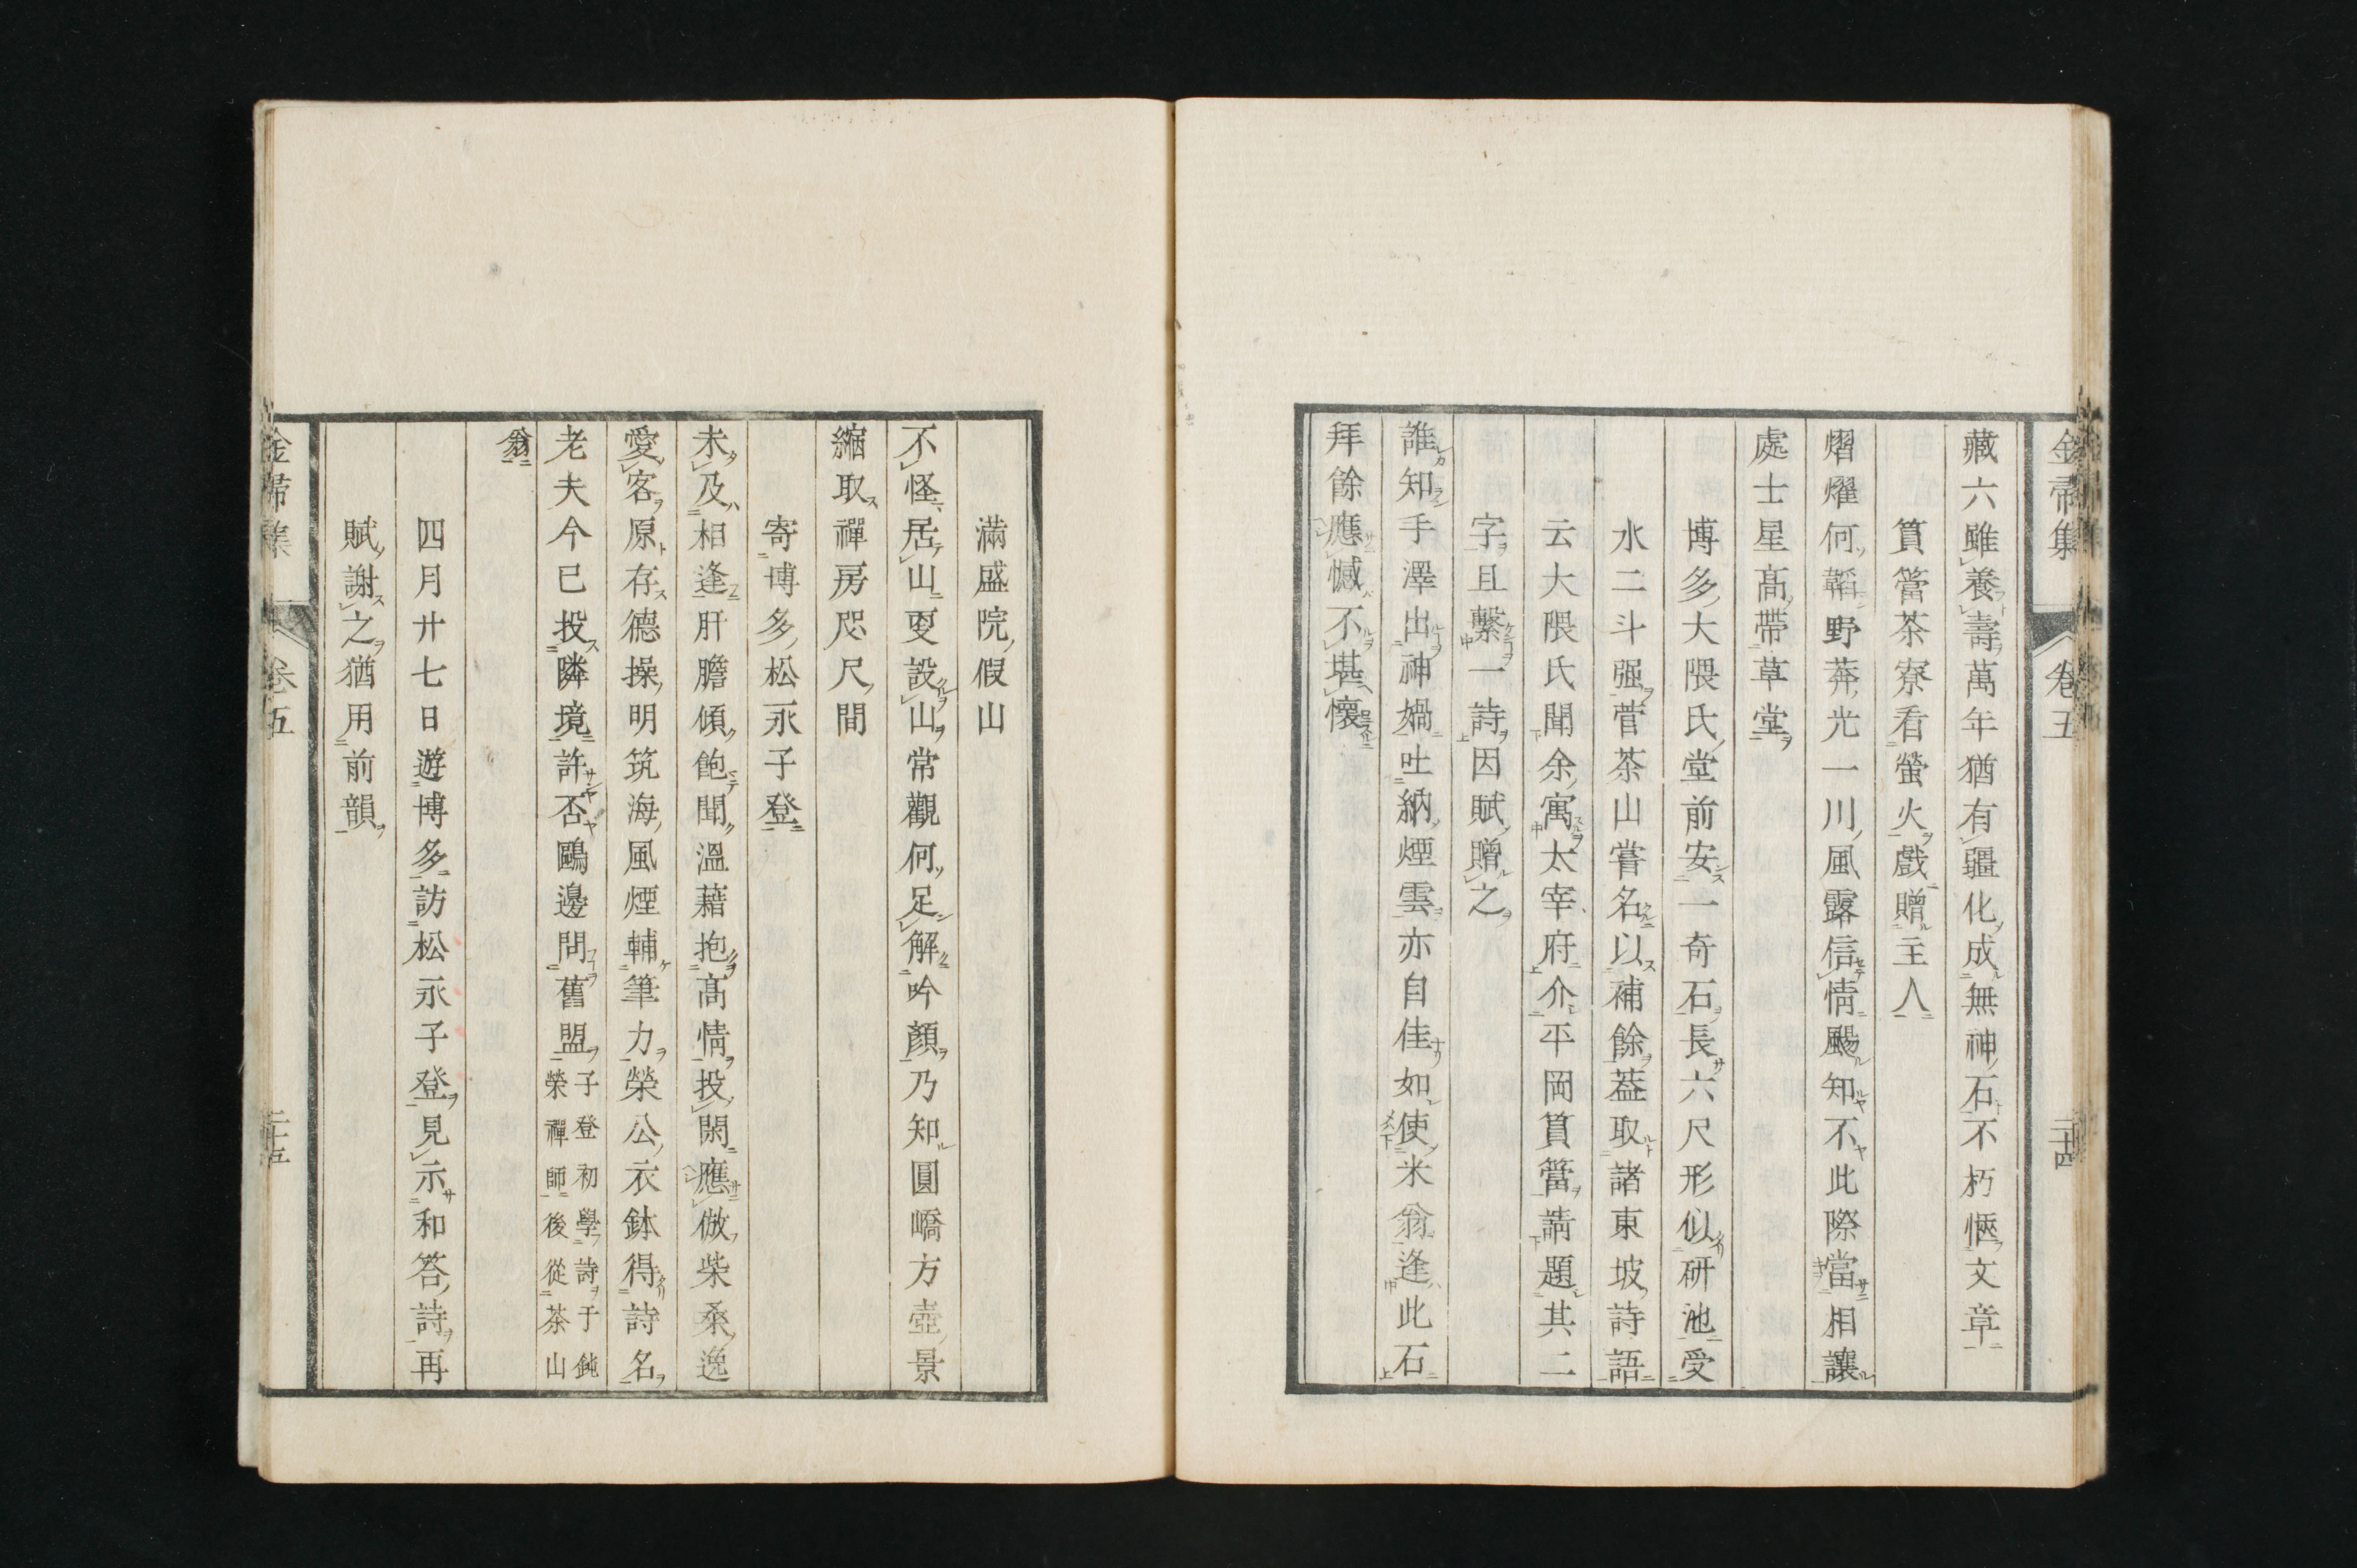 金帚集 卷五 二十四
藏六雖養壽萬年猶有疆化成無神石不朽愜文章
篔簹茶寮看螢火戲贈主人
熠燿何韜野莽光一川風露信情颺知不此際當相讓
處士星髙帶草堂
博多大隈氏堂前安一奇石長六尺形似研池受
水二斗强菅茶山嘗名以補餘葢取諸東坡詩語
云大隈氏聞余寓太宰府介平岡篔簹請題其二
字且繫一詩因賦贈之
誰知手澤出神媧吐納煙雲亦自佳如使米翁逢此石
拜餘應憾不堪懷
滿盛院假山
不怪居山更設山常觀何足解吟顏乃知圓嶠方壺景
縮取禪房咫尺間
寄博多松永子登
未及相逢肝膽傾飽聞溫藉抱髙情投閑應倣柴桑逸
愛客原存德操明筑海風煙輔筆力榮公衣鉢得詩名
老夫今已投隣境許否鷗邊問舊盟子登初學詩于鈍
榮禪師後從茶山
翁
四月廿七日遊博多訪松永子登見示和答詩再
賦謝之猶用前韻
金帚集 卷五 二十五